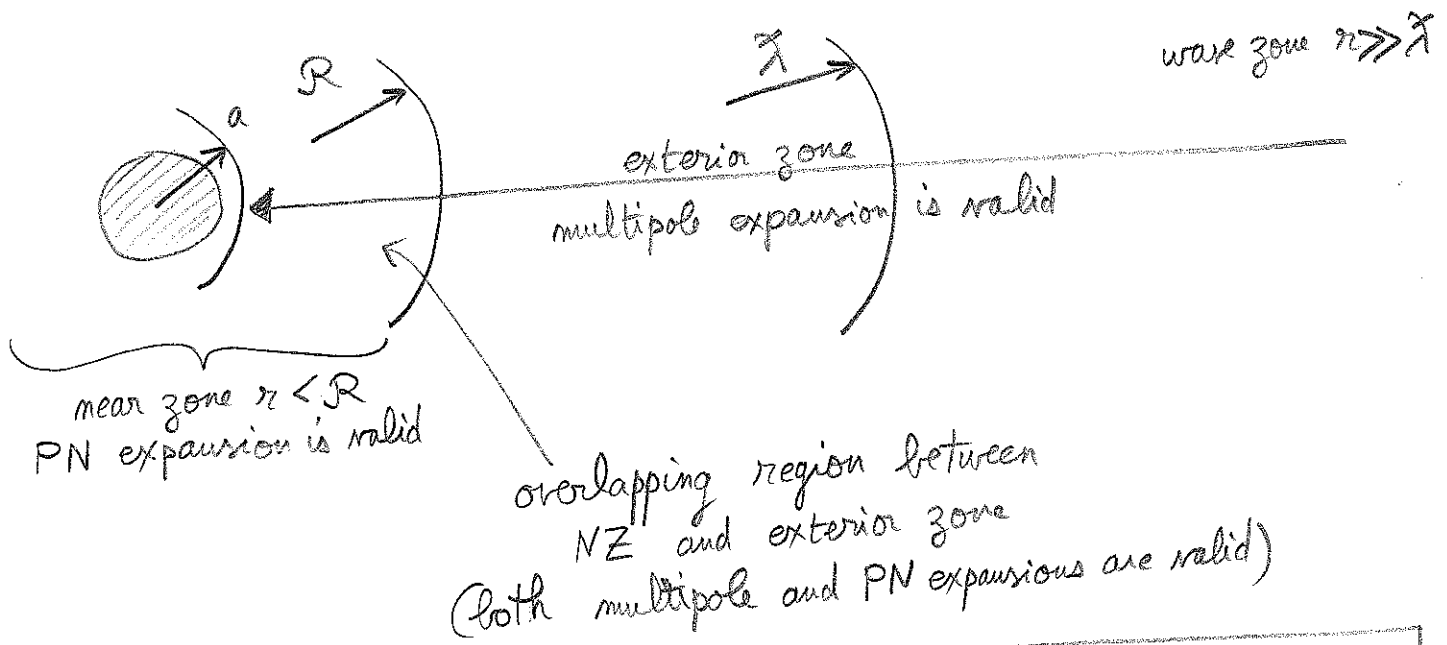 a
R
ƛ
wave zone r≫ƛ
exterior zone
multipole expansion is valid
near zone r < R
PN expansion is valid
overlapping region between
NZ and exterior zone
(both multipole and PN expansions are valid)